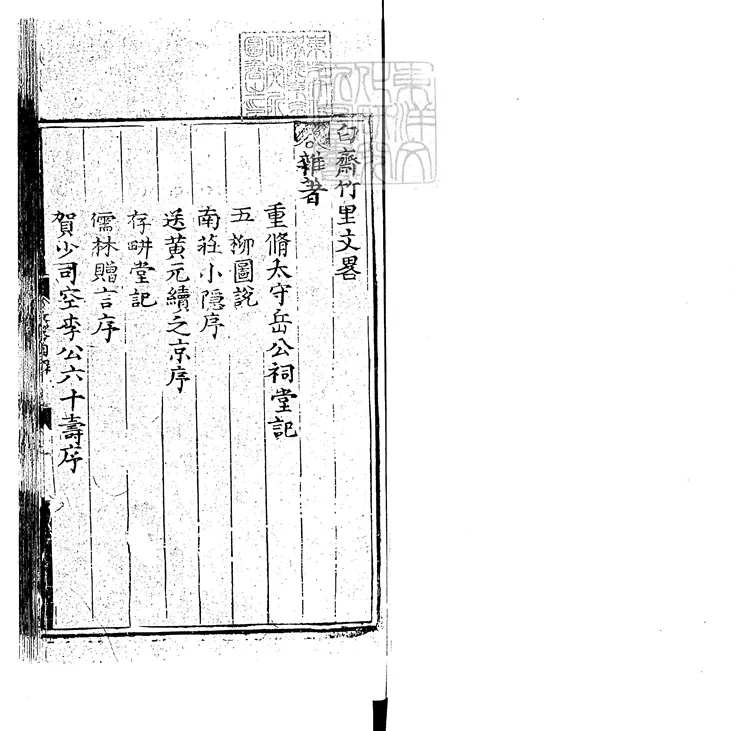 白齋竹里文畧
雜著
重脩太守岳公祠堂記
五柳圖說
南莊小隱序
送黄元續之京序
存畊堂記
儒林贈言序
賀少司空李公六十壽序